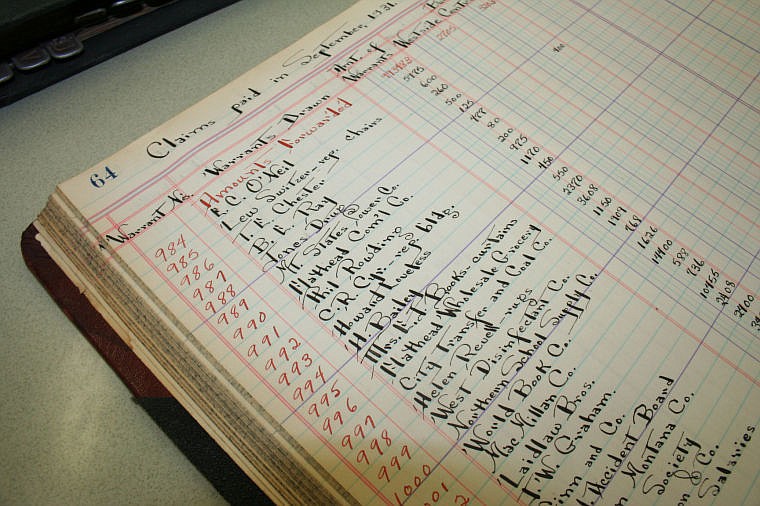 64 Claims paid in September, 1931
Warrant No. Warrants Drawn Amt. of Warrants Westside Central
Amounts Forwarded
984 F. C. O'Neil
985 Lew Switzer - rep. chairs
986 T. E. Chester
987 B. E. Ray
988 Jones Drug
989 Mt. States Power Co.
990 Flathead Com'l Co.
991 Phil Rowding
992 C. R. Cyr - rep. bldg.
993 Howard Loveless
994 H. Bailey
995 Mrs. E. T. Books - curtains
996 Flathead Wholesale Grocery
997 City Transfer and Coal Co.
998 Helen Revell - rugs
999 West Disinfecting Co.
1000 Northern School Supply Co.
001 World Book Co.
2 Mac Millan Co.
Laidlaw Bros.
T. W. Graham
Ginn and Co.
Accident Board
Montana Co.
Society
& Co.
Salaries
600
260
500
625
80
200
975
1170
450
550
2370
3608
1150
1709
968
1626
14400
588
736
10455
2408
2400